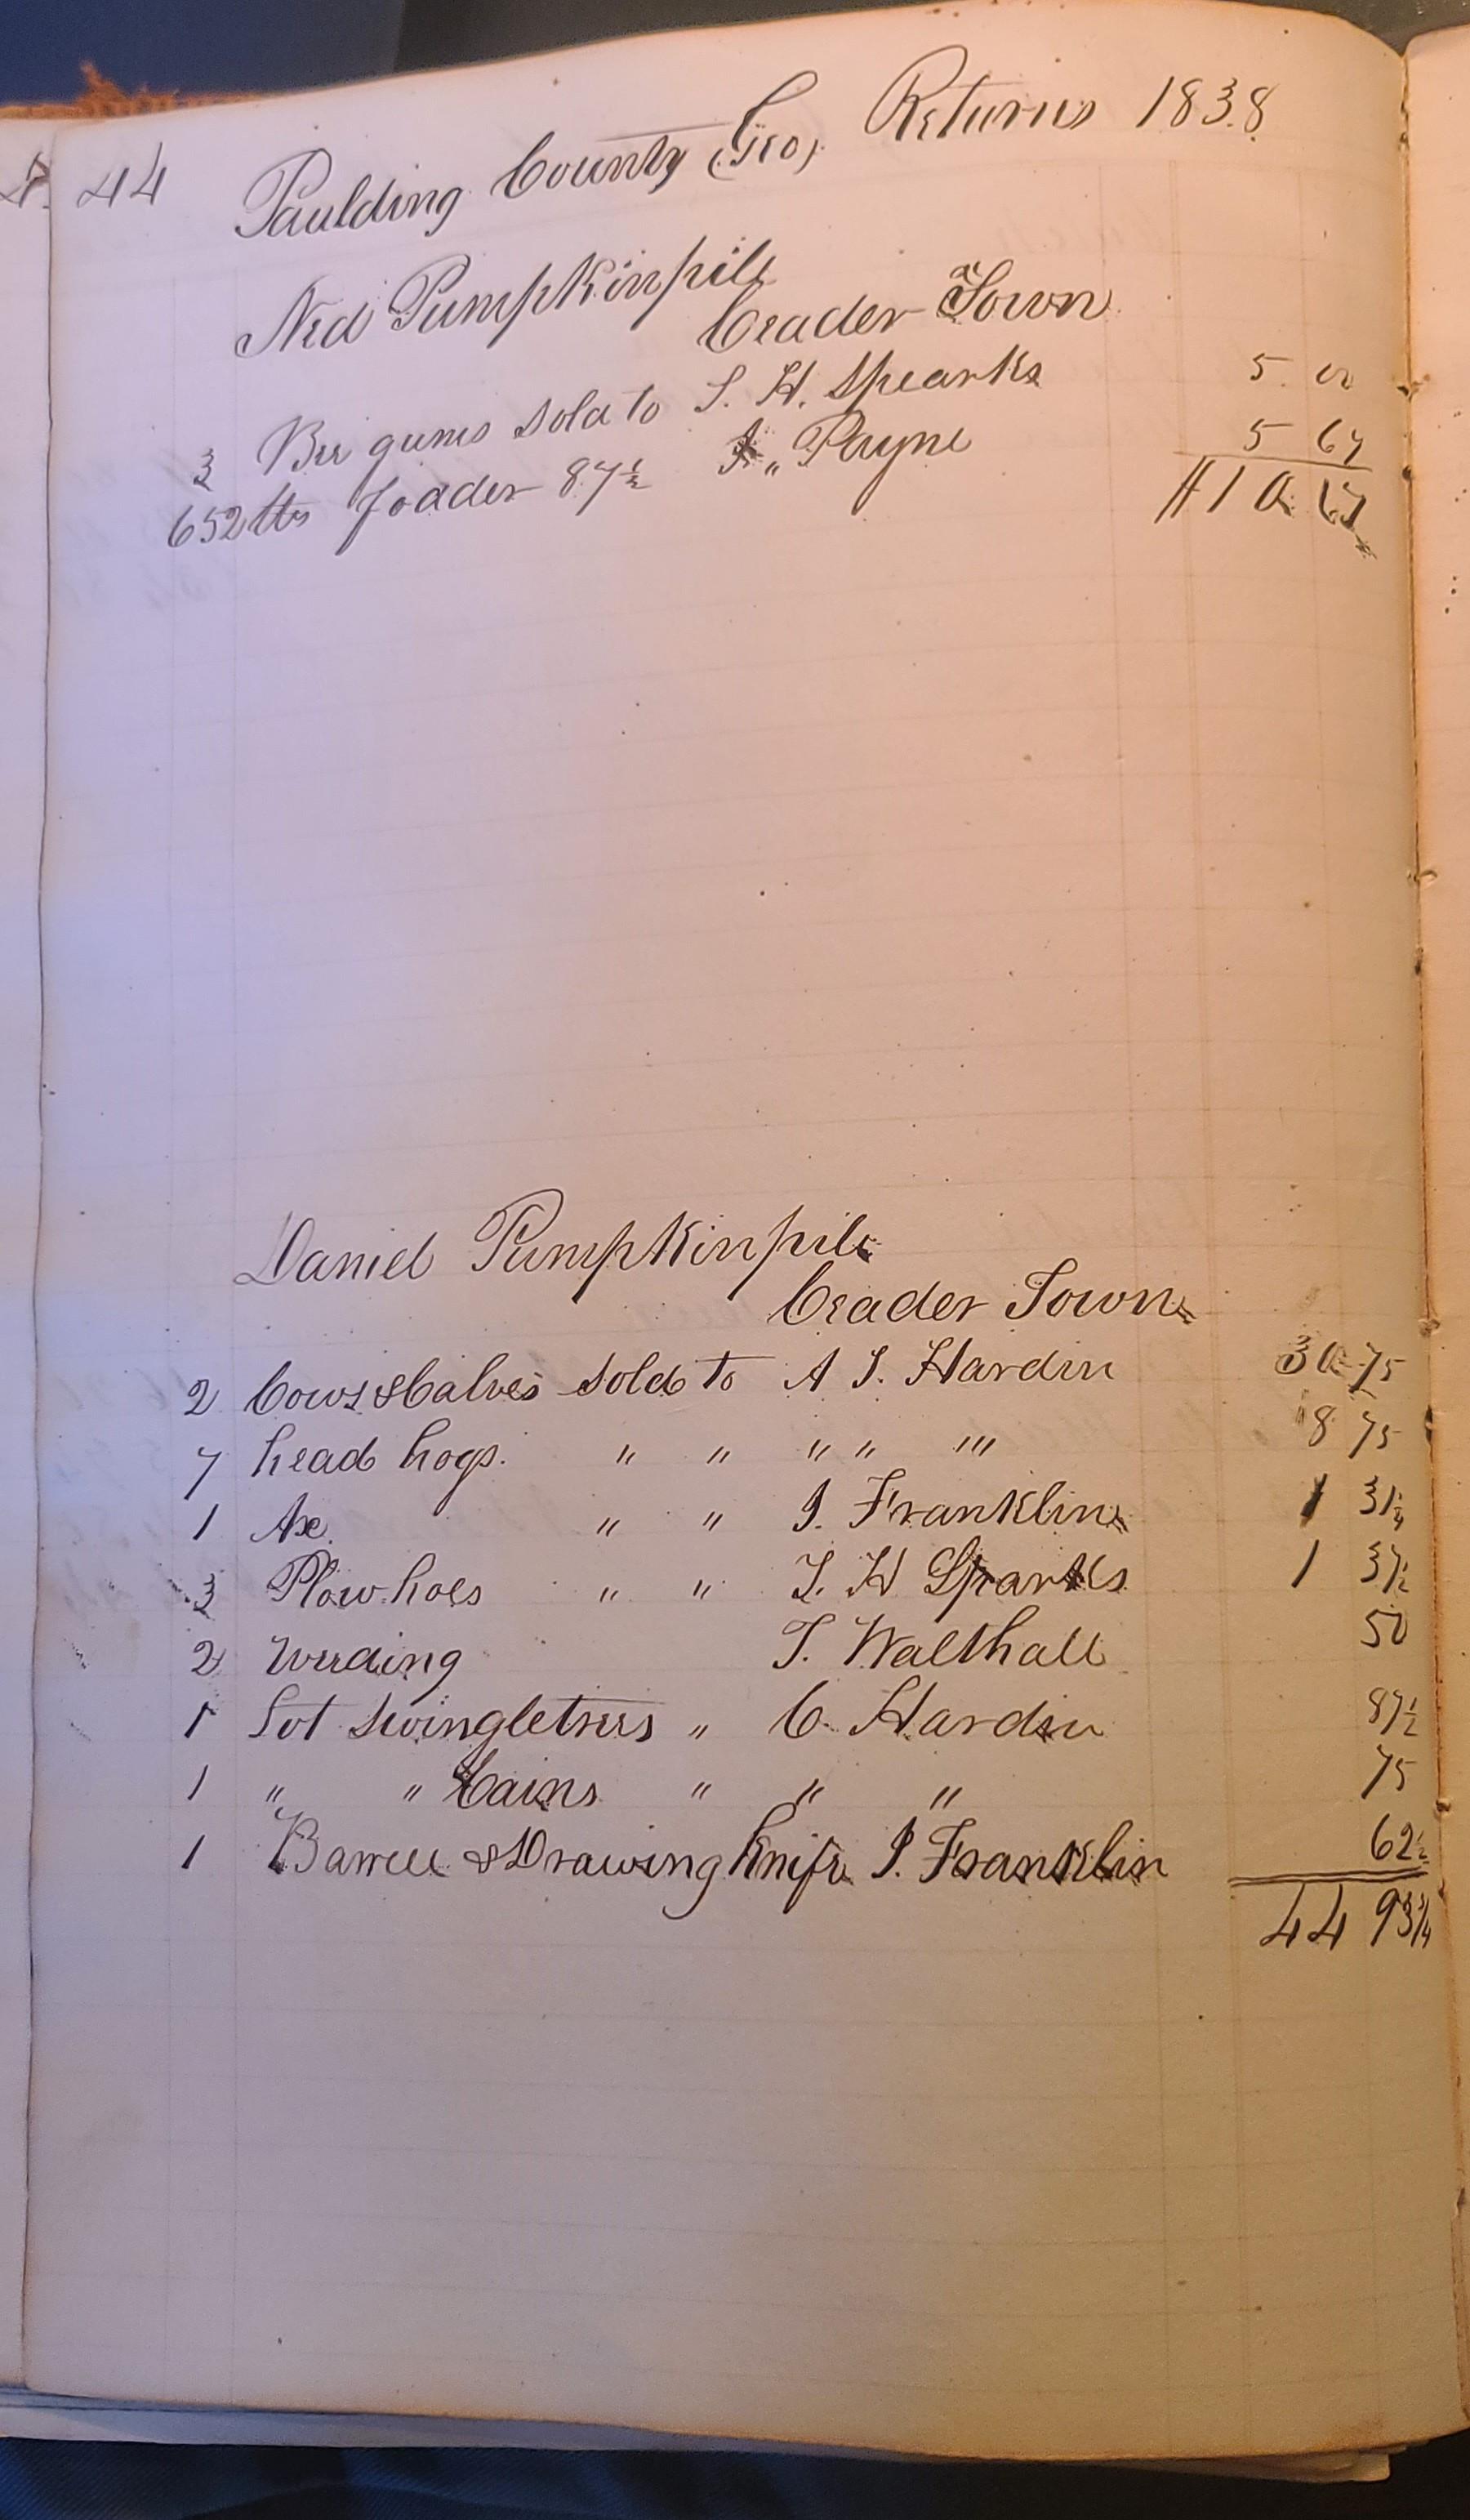 44 Paulding County (Geo). Returns 1838
Ned Pumpkinpile
Ceader Town
3 Bee gums sold to S. H. Spearks 5 00
652 lbs foader 87½ " Payne 5 67
$10 67
Daniel Pumpkinpile
Ceader Town
2 Cows & Calves sold to A S. Hardin 30 75
7 head hogs. " " " " " 8 75
1 Axe " " J. Franklin 1 31¼
3 Plow hoes " " S. H Sparks 1 37½
2 Weeding T. Walthall 50
1 Lot Swingletrees " C. Hardin 87½
1 " " Cains " " " 75
1 Barrell & Drawing Knife J. Franklin 62½
44 93¾